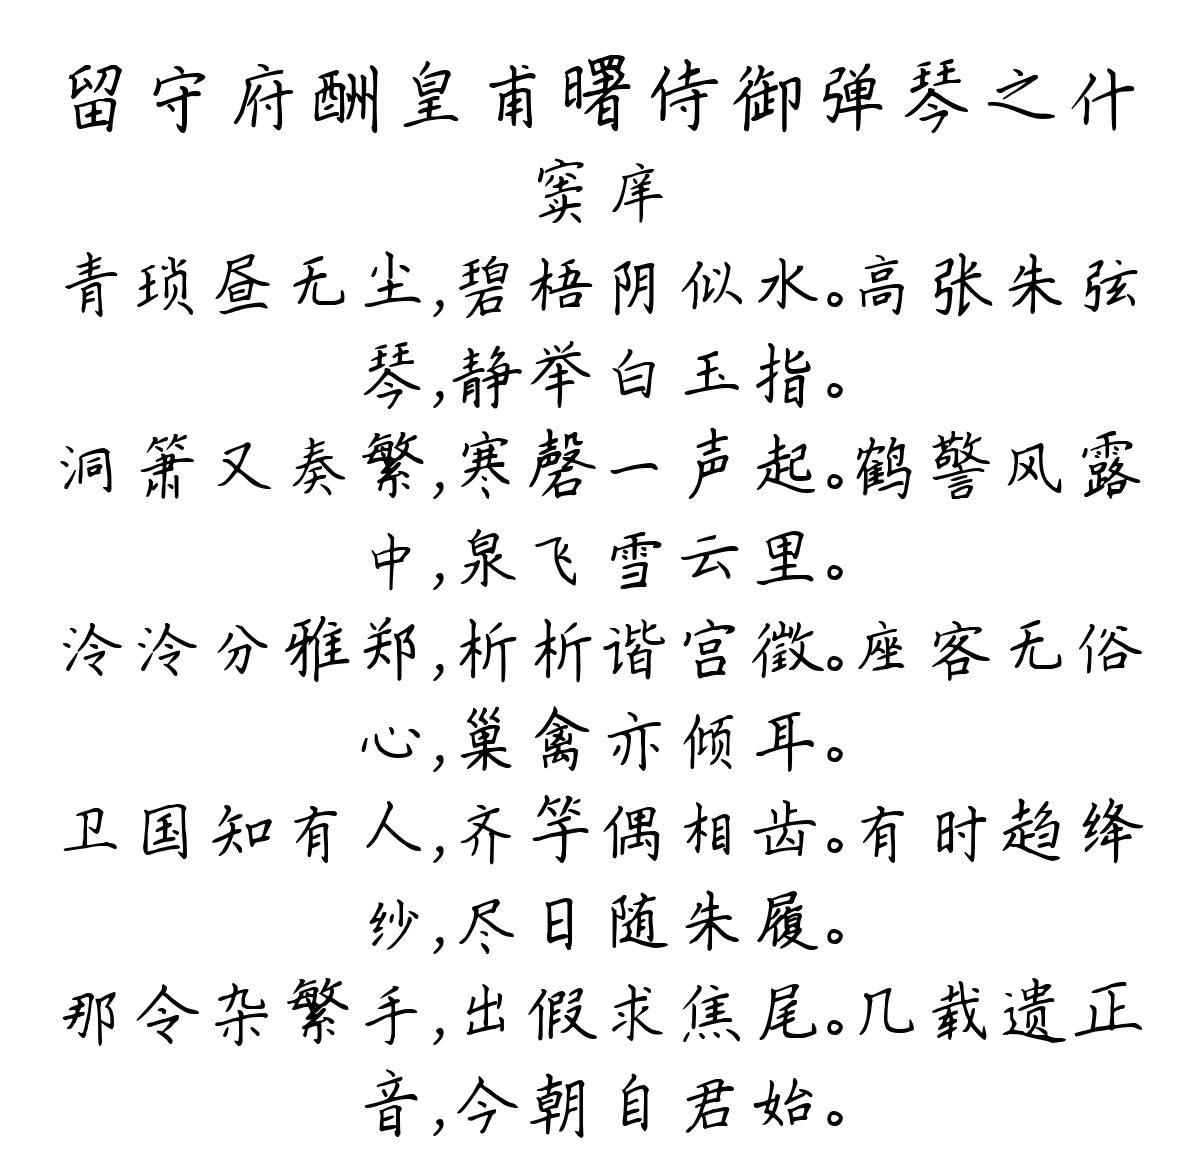 留守府酬皇甫曙侍御弹琴之什
窦庠
青琐昼无尘,碧梧阴似水。高张朱弦
琴,静举白玉指。
洞箫又奏繁,寒磬一声起。鹤警风露
中,泉飞雪云里。
泠泠分雅郑,析析谐宫徵。座客无俗
心,巢禽亦倾耳。
卫国知有人,齐竽偶相齿。有时趋绛
纱,尽日随朱履。
那令杂繁手,出假求焦尾。几载遗正
音,今朝自君始。